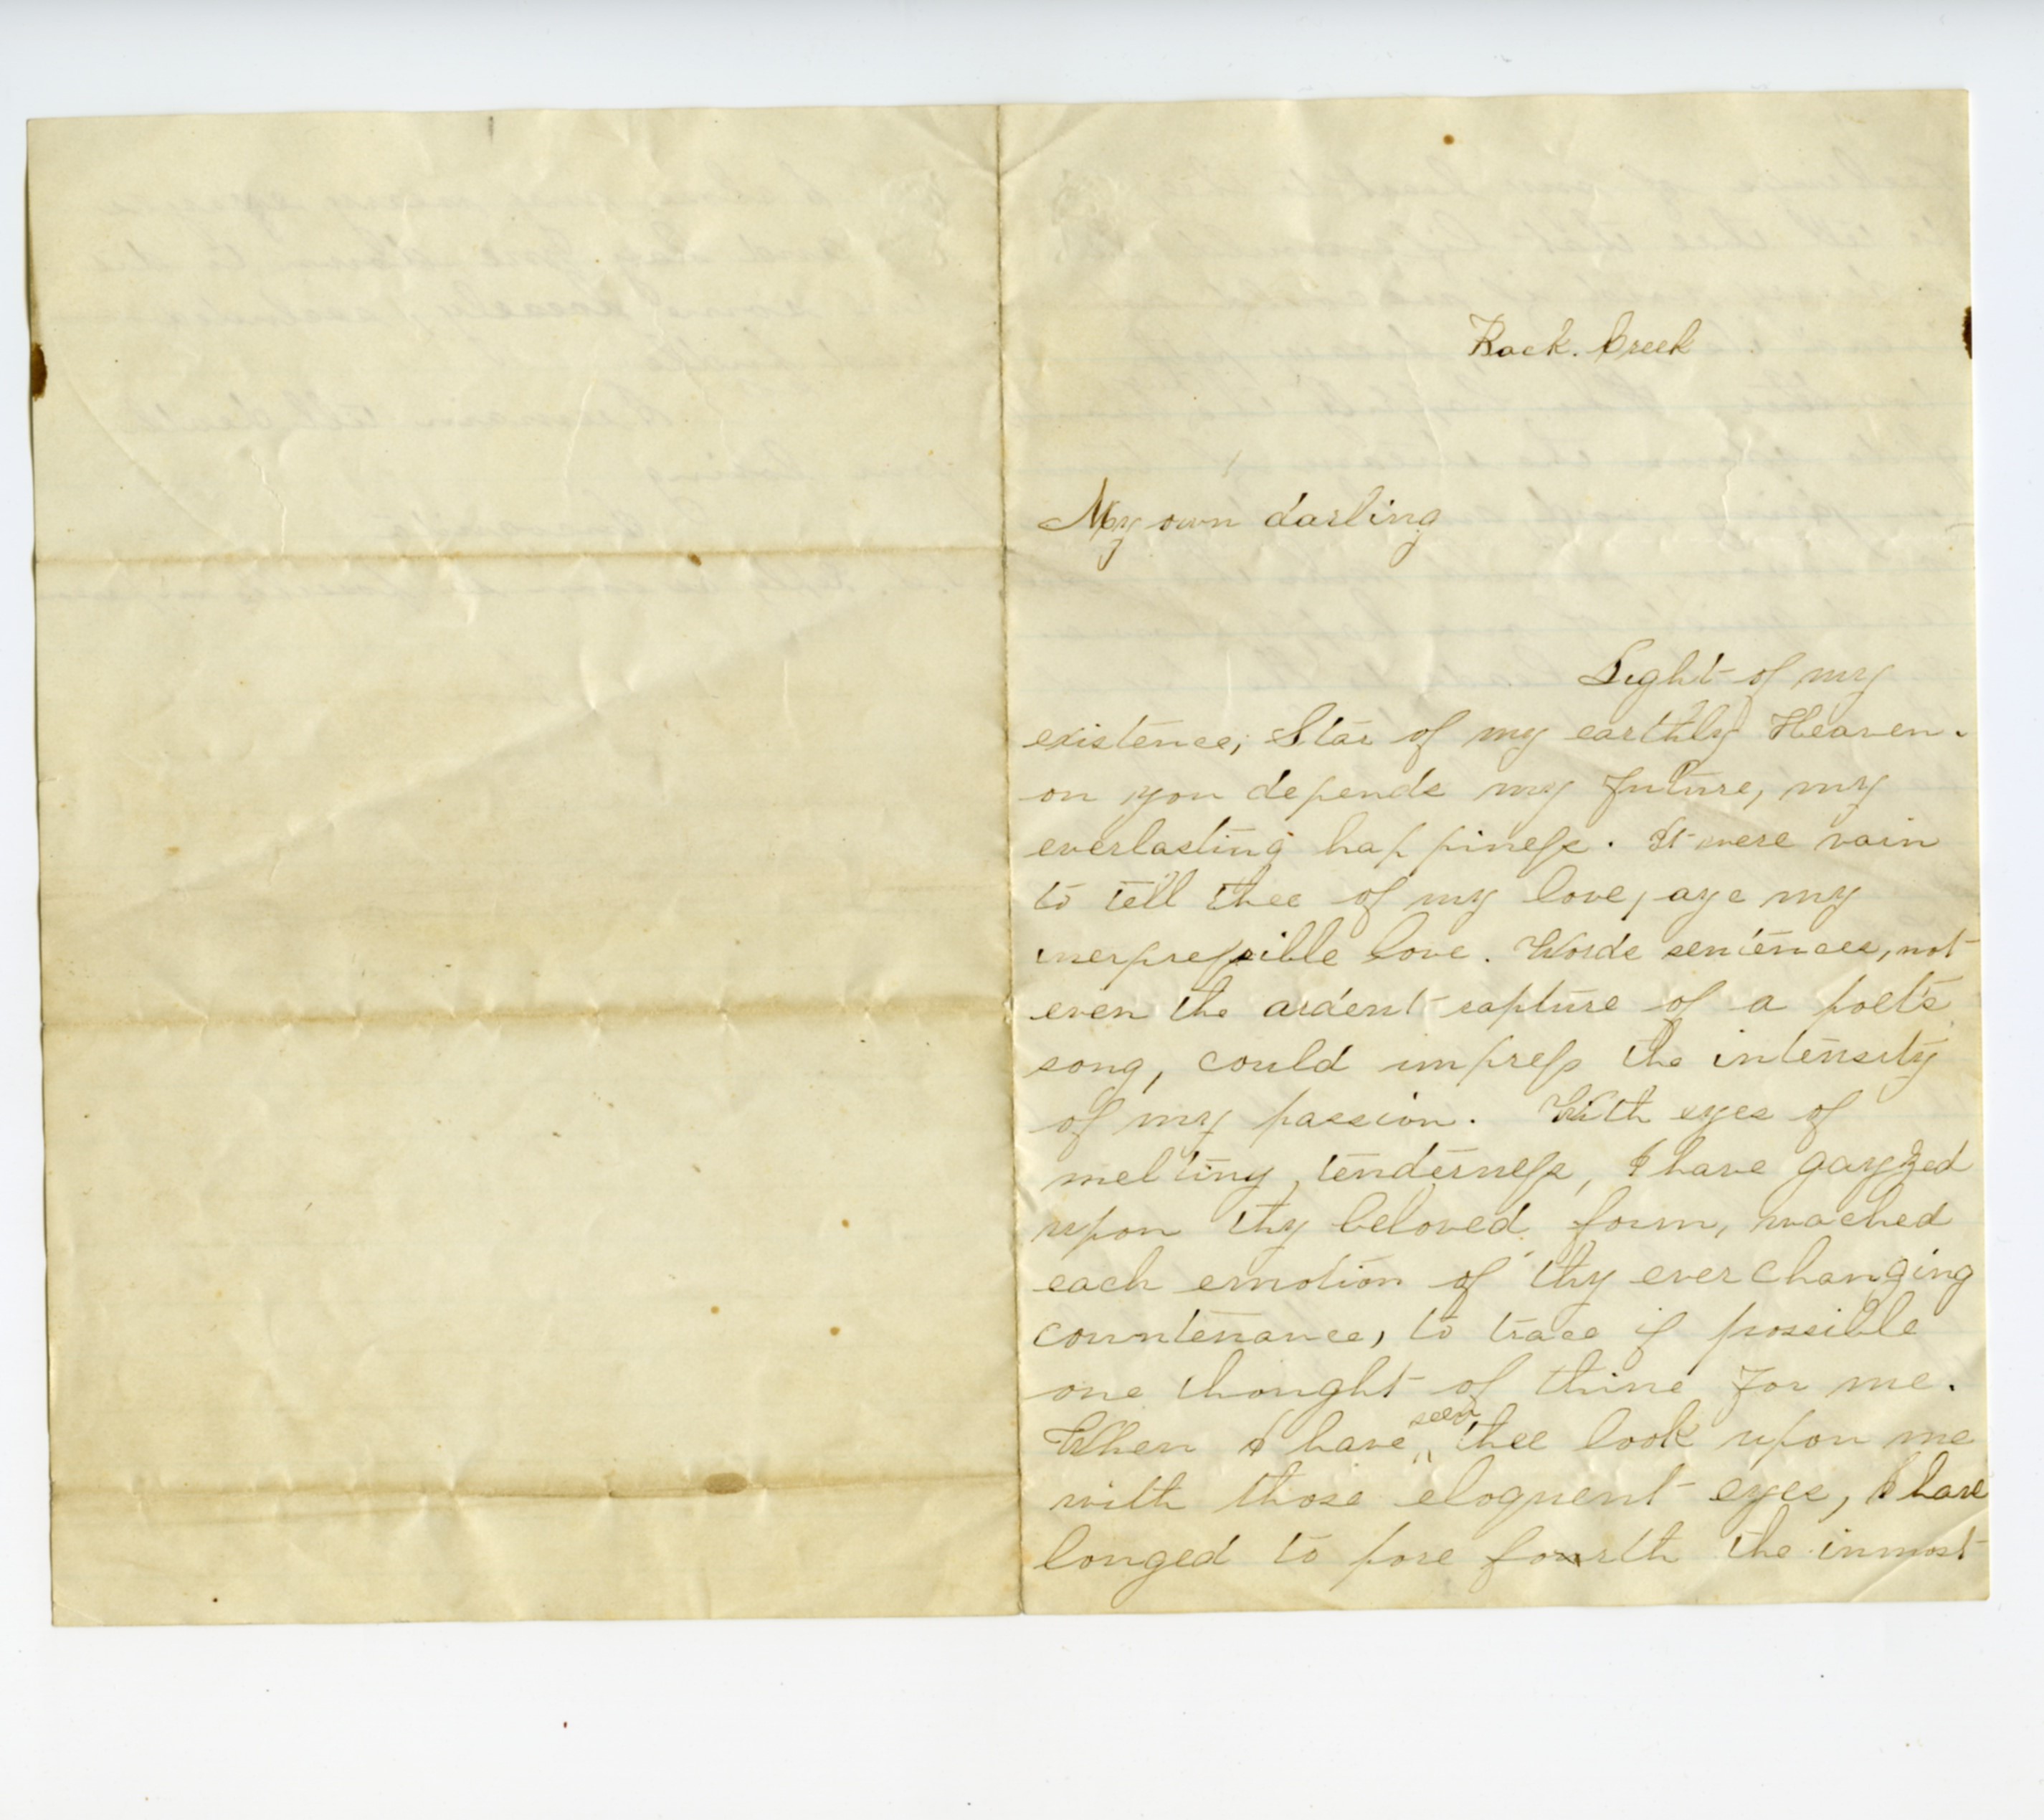 Rock. Creek
My own darling
Light of my
existence, Star of my earthly Heaven.
on you depends my future, my
everlasting happiness. It were vain
to tell thee of my love, aye my
inexpressible love. Words sentences, not
even the ardent rapture of a poets
song, could impress the intensity
of my passion. With eyes of
melting tenderness, I have gayzed
upon thy beloved form, wached
each emotion of thy ever changing
countenance, to trace if possible
one thought of thine for me.
When I have seen thee look upon me
with those eloquent eyes, I have
longed to pore fourth the inmost